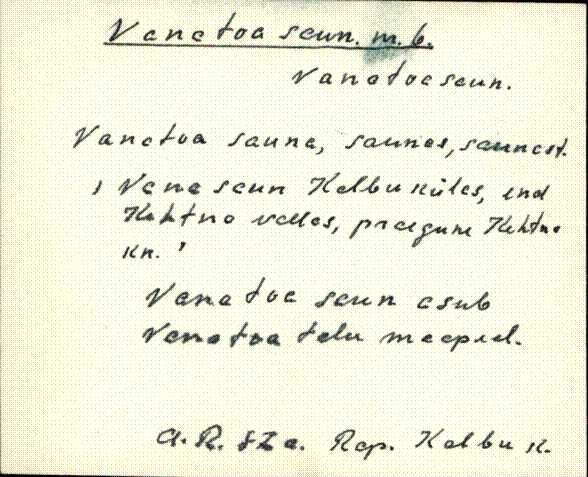 Vanatoa saun. m.b.
Vanatoasaun.
Vanatoa sauna, saunas, saunast.
, Vana saun Kalbu külas, end
Kehtna vallas, praegune Kehtna
kn. '
Vanatoa saun asub
Vanatoa talu maapial.
Rap. Kalbu k.